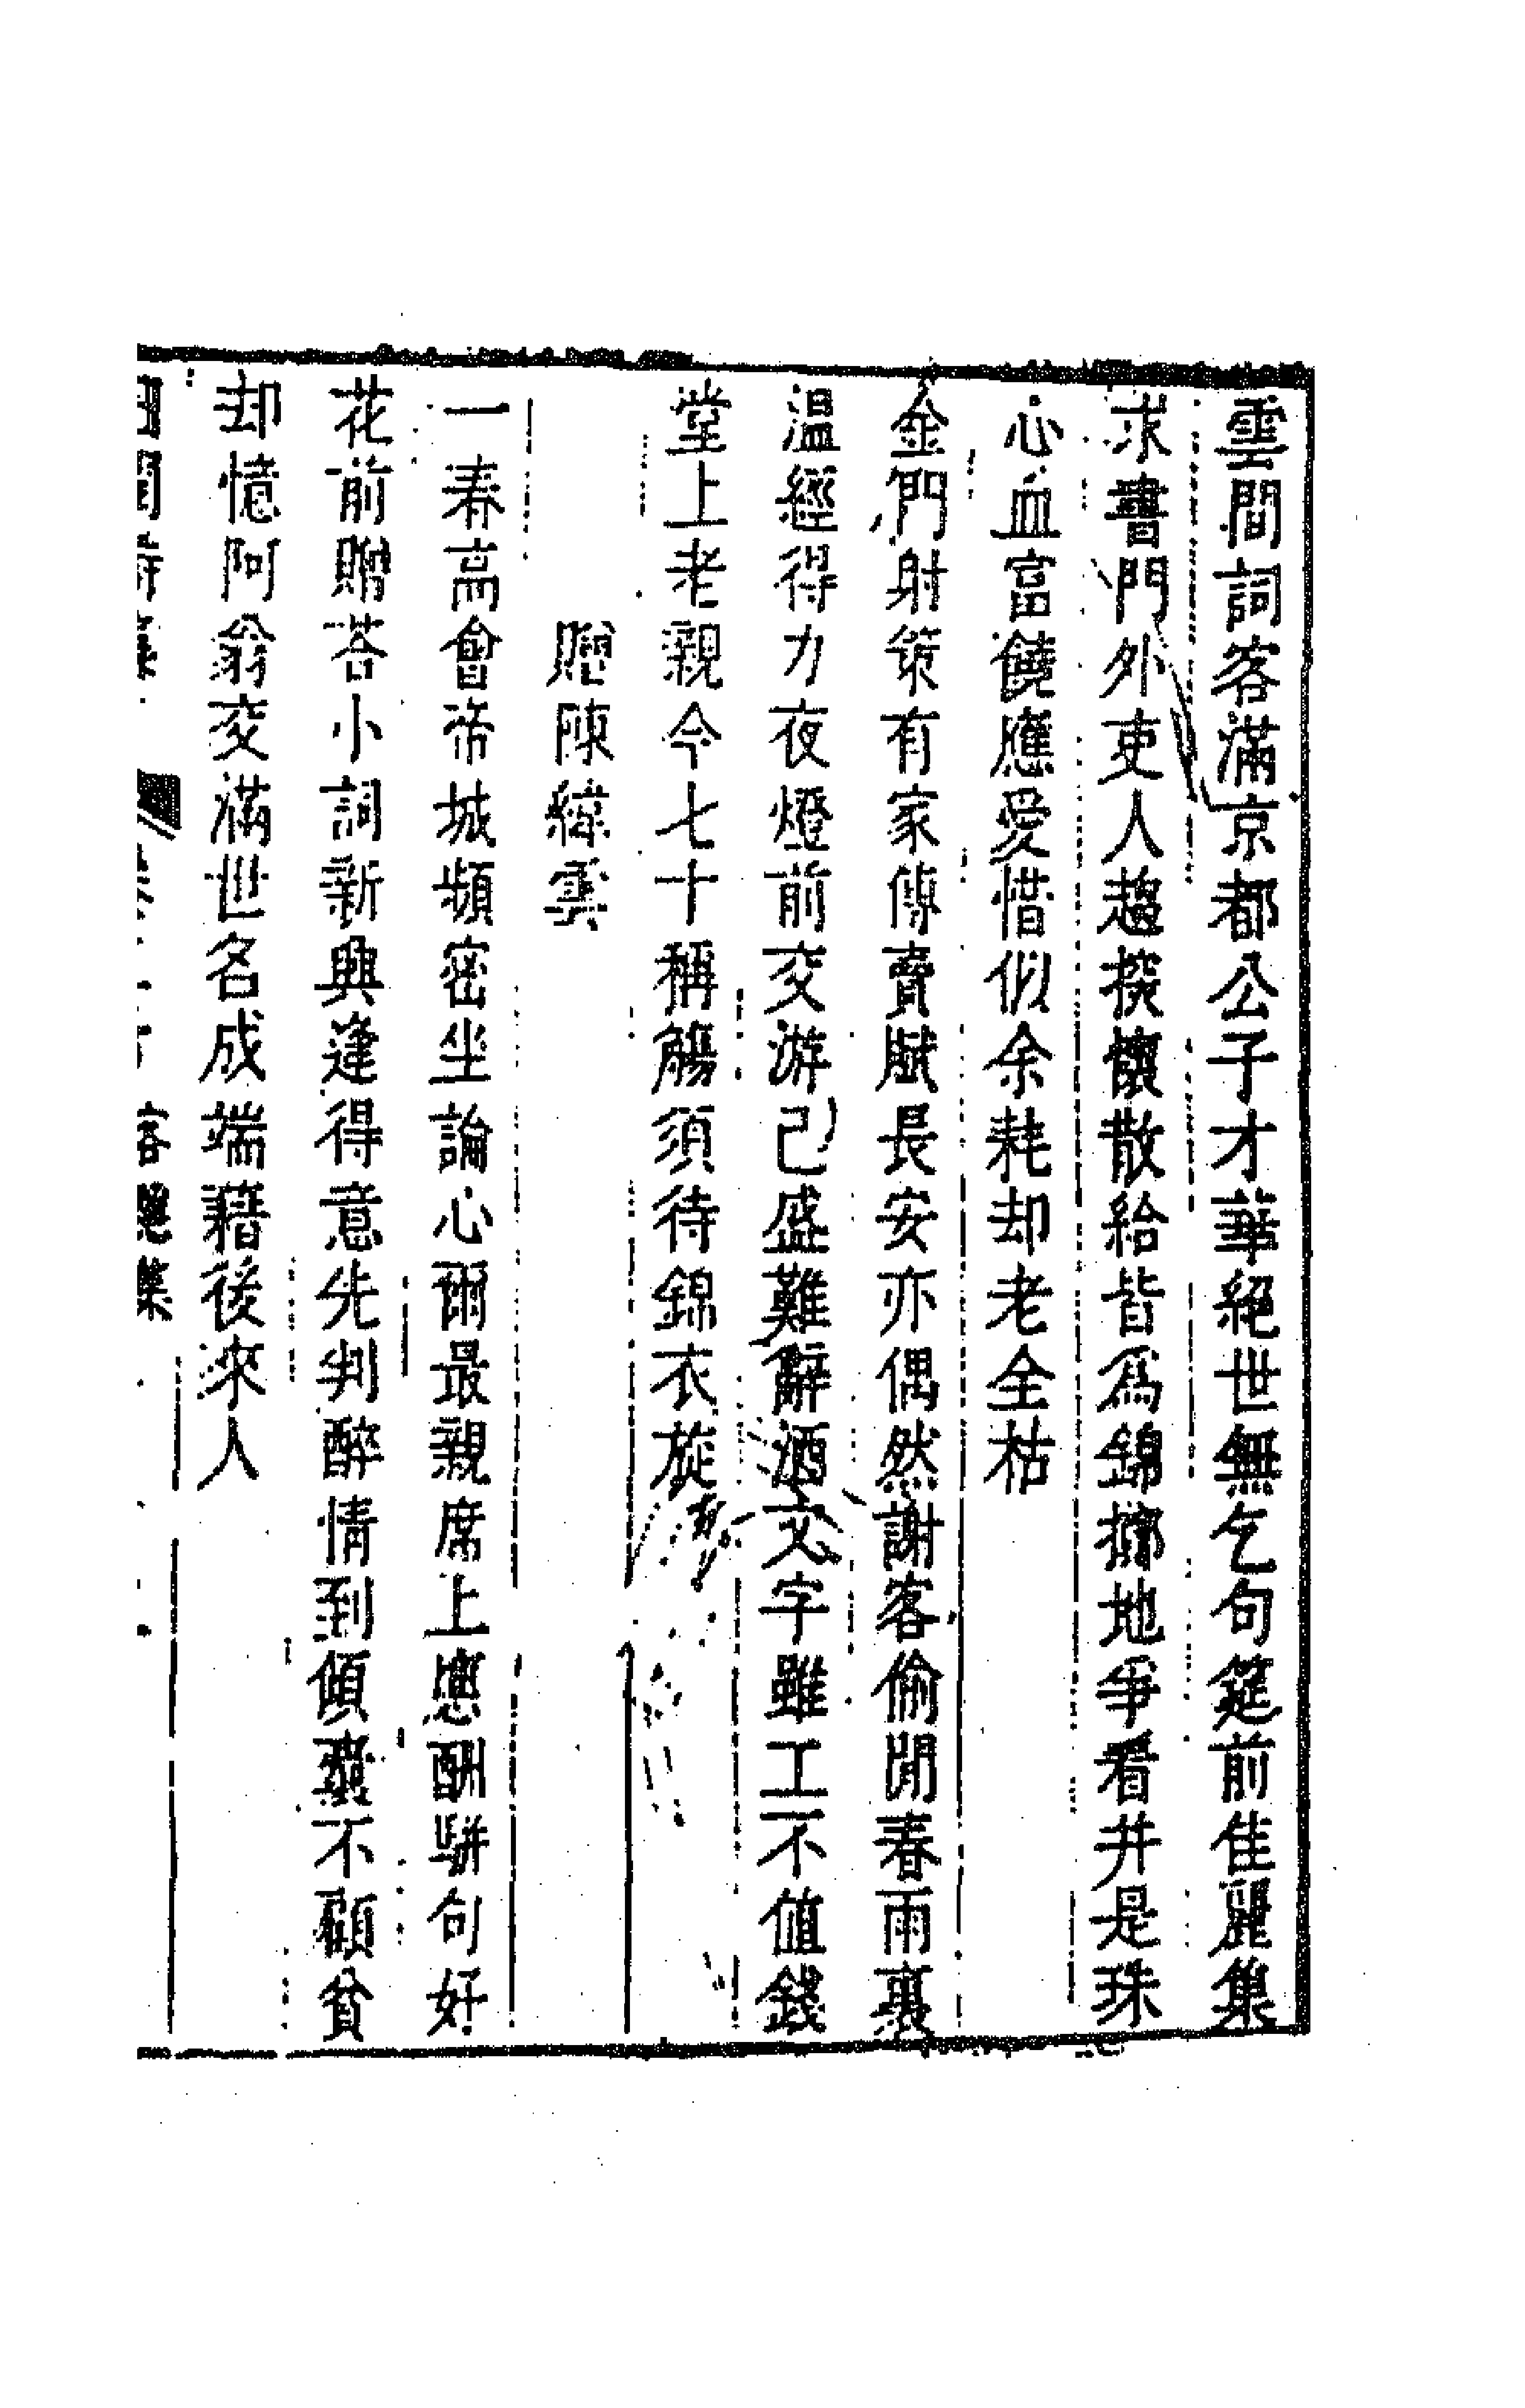 雲間詞客滿京都公子才華絕世無乞句筵前隹麗集
求書門外吏人趨揆懷散給皆爲錦擲地爭看并是珠
心血富饒應愛惜似余耗却老全枯
金門射策有家傳賣賦長安亦偶然謝客偷閒春雨裏
溫經得力夜燈前交游已盛難辭酒文字雖工不值錢
堂上老親今七十稱觴須待錦衣旋
贈陳緯雲
一春高會帝城頻密坐論心爾最親席上應酬駢句好
花前贈荅小詞新興逢得意先判醉情到傾囊不顧貧
却憶阿翁交滿世名成端藉後來人
田閒詩集 客隱集